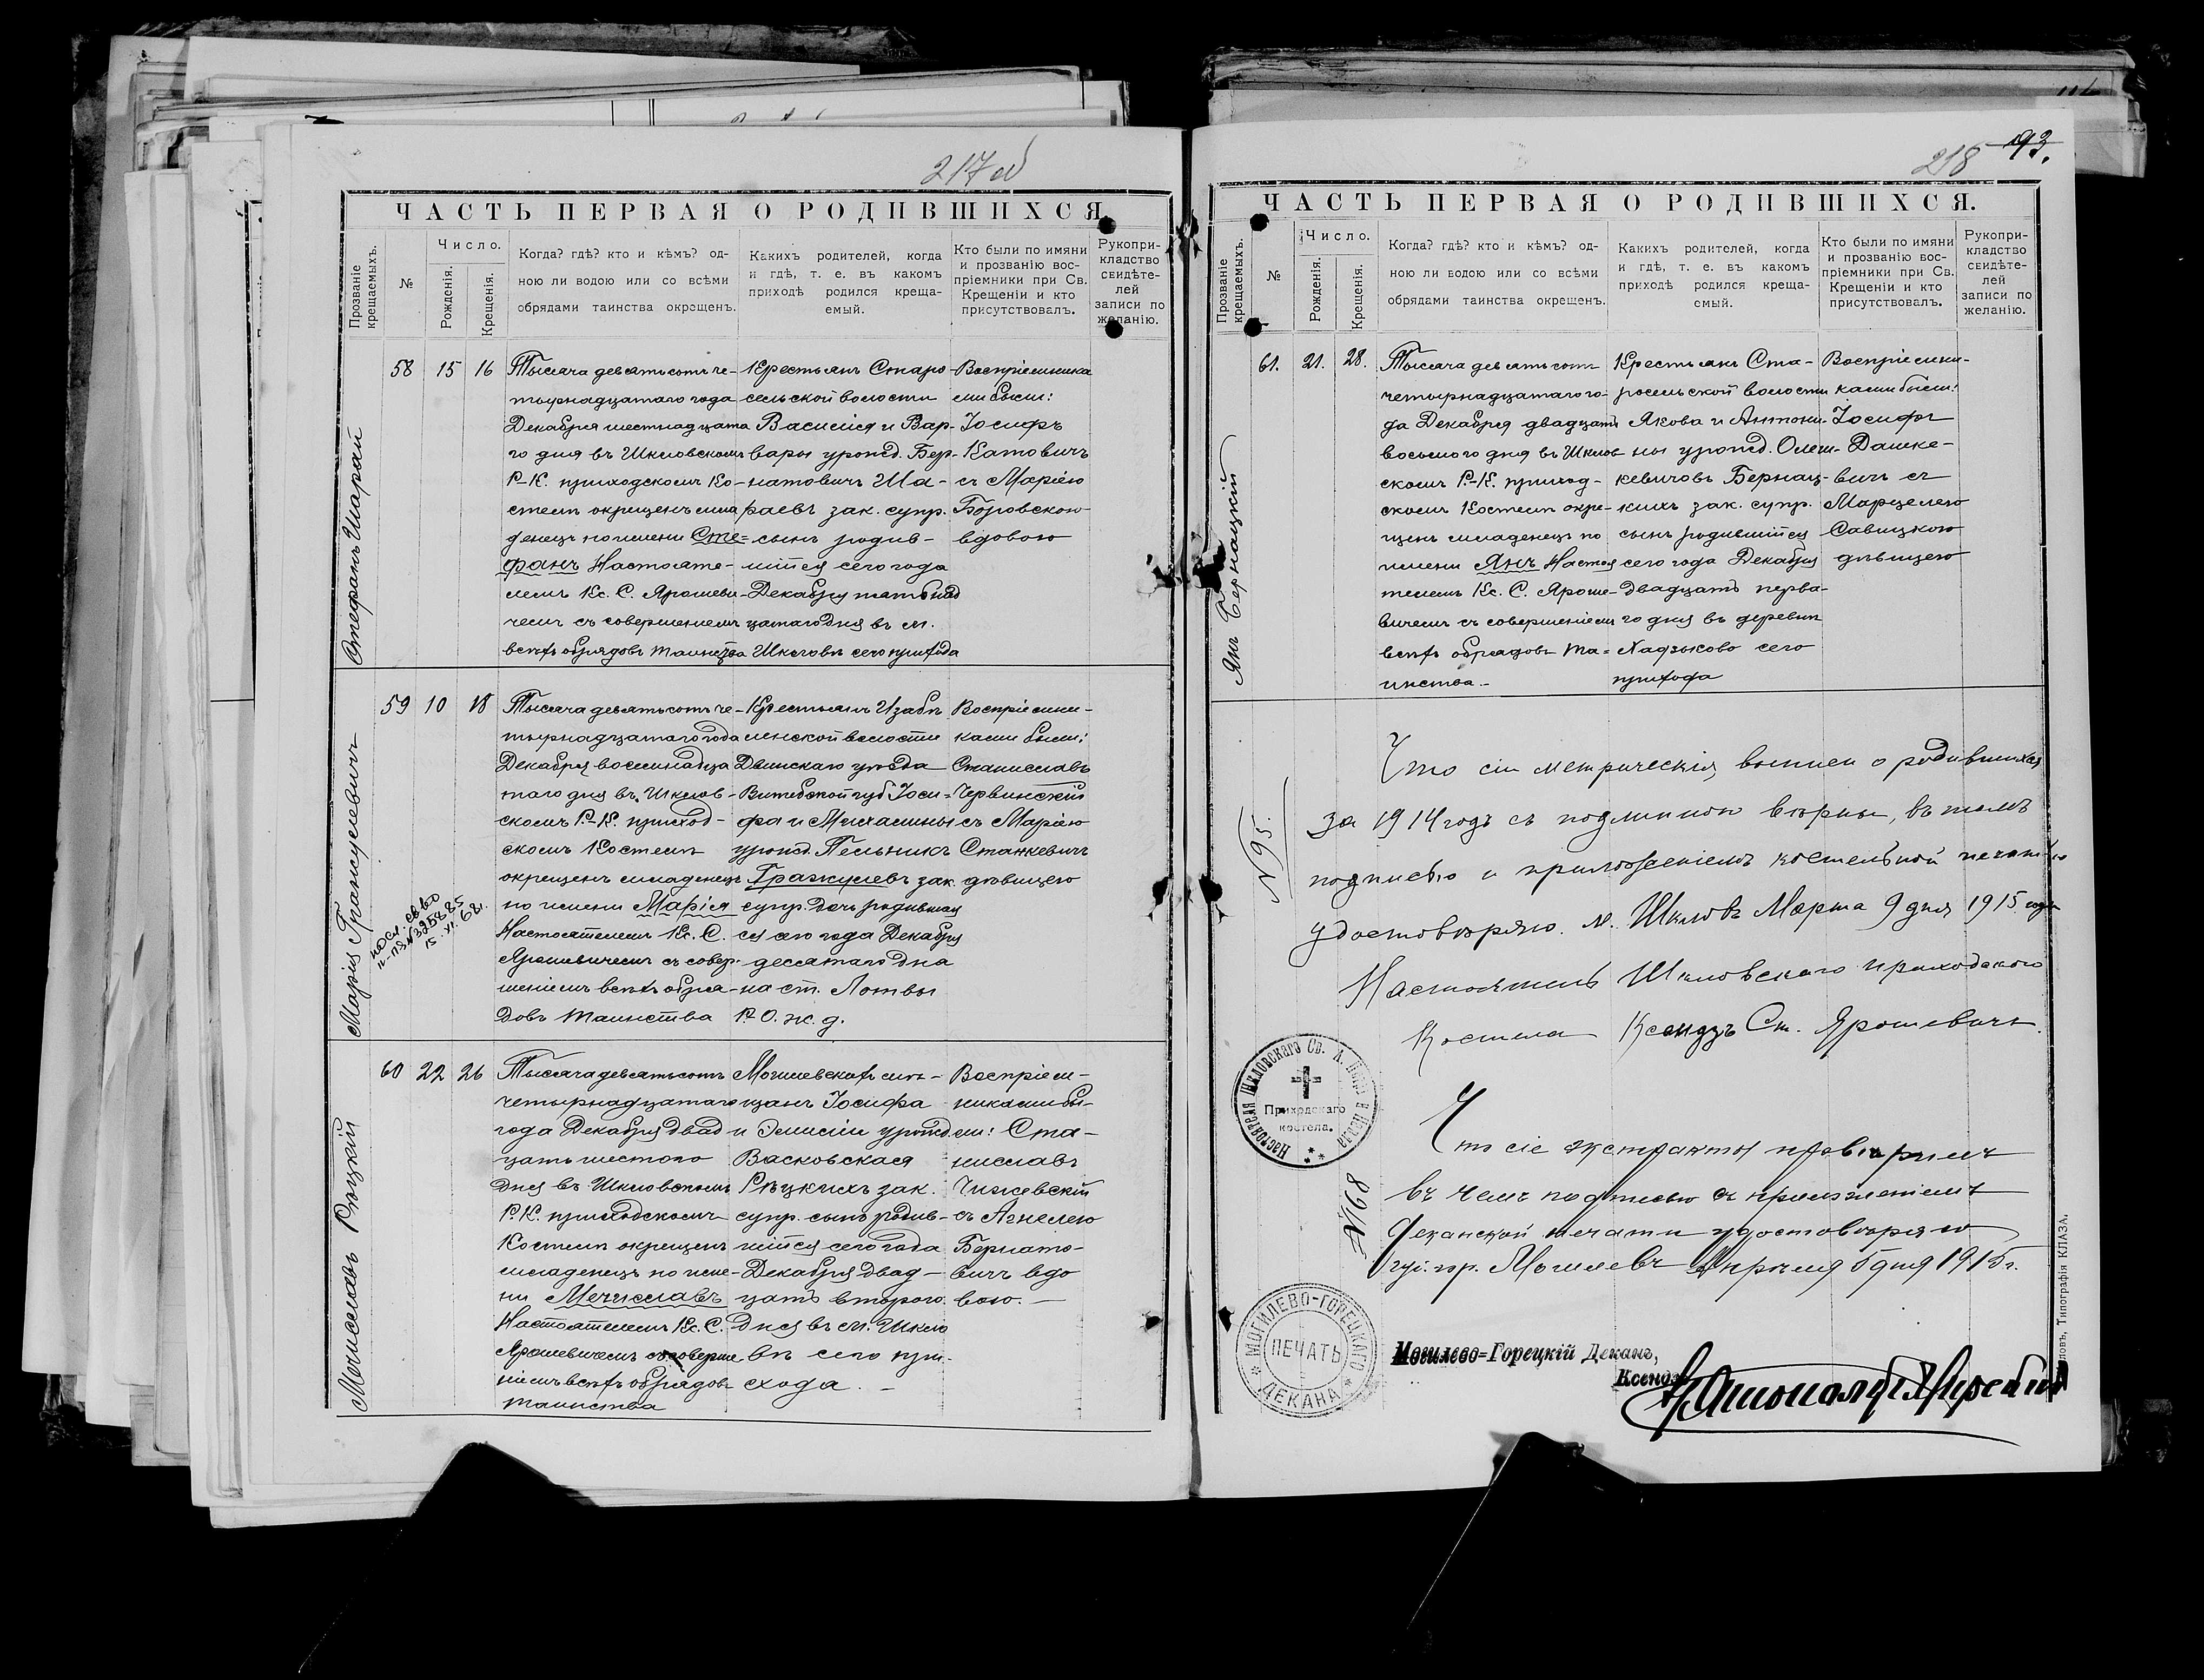 217 об
ЧАСТЬ ПЕРВАЯ О РОДИВШИХСЯ
Прозваніе крещаемыхъ.
№
Число.
Рожденія.
Крещенія.
Когда? гдѣ? кто и кѣмъ? од-
ною ли водою или со всѣми
обрядами таинства окрещенъ.
Какихъ родителей, когда
и гдѣ, т. е. въ какомъ
приходѣ родился креща-
емый.
Кто были по имяни
и прозванію вос-
пріемники при Св.
Крещеніи и кто
присутствовалъ.
Рукопри-
кладство
свидѣте-
лей
записи по
желанію.
Стефанъ Шарай
58 15 16
Тысяча девятьсотъ че-
тырнадцатаго года
Декабря шестнадцата
го дня въ Шкловскомъ
Р.-К. приходскомъ Ко-
стелѣ окрещенъ мла
денецъ по имени Сте=
фанъ Настояте-
лемъ Кс. С. Ярошеви-
чемъ съ совершеніемъ
всѣхъ обрядовъ таинства
Крестьянъ Старо-
сельской волости
Василія и Вар-
вары урожд. Бер-
натовичъ Ша-
раевъ зак. супр.
сынъ родив-
шійся сего года
Декабря пятнад
цатаго дня въ м.
Шкловѣ сего прихода
Воспріемника
ми были:
Іосифъ
Катовичъ
съ Маріею
Боровскою
вдовою
Марія Гражулевичъ
59 10 18
посл. св во
II-ПЗ №325885
15.VI.68г.
Тысяча девятьсотъ че-
тырнадцатаго года
Декабря восемнадца
таго дня въ Шклов-
скомъ Р.-К. приход-
скомъ Костелѣ
окрещенъ младенецъ
по имени Марія
Настоятелемъ Кс. С.
Ярошевичемъ съ совер-
шеніемъ всѣхъ обря-
довъ таинства
Крестьянъ Изабе
линской волости
Двинскаго уѣзда
Витебской губ Іоси=
фа и Михалины
урожд. Пельникъ
Гражулевъ зак.
супр. дочь родившая
ся сего года Декабря
десятаго дня
на ст. Лотвы
Р. О. ж. д.
Воспріемни-
ками были:
Станиславъ
Червинскій
съ Маріею
Станкевичъ
дѣвицею
Мечиславъ Рѣцкій
60 22 26
Тысяча девятьсотъ
четырнадцатаго
года Декабря двад
цать шестого
дня въ Шкловскомъ
Р.К. приходскомъ
Костелѣ окрещенъ
младенецъ по име-
ни Мечиславъ
Настоятелемъ Кс. С.
Ярошевичемъ съ соверше
ніемъ всѣхъ обрядовъ
таинства
Могилевскихъ мѣ-
щанъ Іосифа
и Эмиліи урожд
Васковская
Рѣцкихъ зак.
супр. сынъ родив-
шійся сего года
Декабря двад-
цать второго
дня въ м. Шкло
вѣ сего при-
схода. -
Воспріем-
никами бы-
ли: Ста-
ниславъ
Чижевскій
съ Агнелею
Бернато-
вичъ вдо
вою. -
218 193.
ЧАСТЬ ПЕРВАЯ О РОДИВШИХСЯ.
Прозваніе крещаемыхъ.
№
Число.
Рожденія.
Крещенія.
Когда? гдѣ? кто и кѣмъ? од-
ною ли водою или со всѣми
обрядами таинства окрещенъ.
Какихъ родителей, когда
и гдѣ, т. е. въ какомъ
приходѣ родился креща-
емый.
Кто были по имяни
и прозванію вос-
пріемники при Св.
Крещеніи и кто
присутствовалъ.
Рукопри-
кладство
свидѣте-
лей
записи по
желанію.
Янъ Бернацкій
61. 21. 28.
Тысяча девятьсотъ
четырнадцатаго го-
да Декабря двадцать
восьмого дня въ Шклов
скомъ Р.-К. приход-
скомъ Костелѣ окре-
щенъ младенецъ по
имени Янъ Настоя
телемъ Кс. С. Яроше-
вичемъ съ совершеніемъ
всѣхъ обрядовъ та=
инства.-
Крестьянъ Ста-
росельской волости
Якова и Антони-
ны урожд. Олеш-
кевичовъ Бернац-
кихъ зак. супр.
сынъ родившійся
сего года Декабря
двадцать перва-
го дня въ деревнѣ
Надзьково сего
прихода
Воспріемни-
ками были:
Іосифъ
Дашке-
вичъ съ
Марцелею
Савицкою
дѣвицею
№95.
Что сіи метрическія выписи о родившихся
за 1914 годъ съ подлинною вѣрны, въ томъ
подписью и приложеніемъ костельной печати
удостовѣряю. м. Шкловъ Марта 9 дня 1915 года
Настоятель Шкловскаго приходского
Костела Ксендзъ Ст. Ярошевичъ.
Настоятеля Шкловскаго Св. А. Петра и Павла
Приходскаго
костела.
№168
Что сіе экстракты провѣрилъ
въ чемъ подписью съ приложеніемъ
Деканской печати удостовѣряю
губ. гор. Могилевъ Апрѣля 5 дня 1915 г.
МОГИЛЕВО-ГОРЕЦКАГО
ПЕЧАТЬ
ДЕКАНА
Могилево=Горецкій Деканъ,
Ксендзъ
Типографія КЛАЗА.